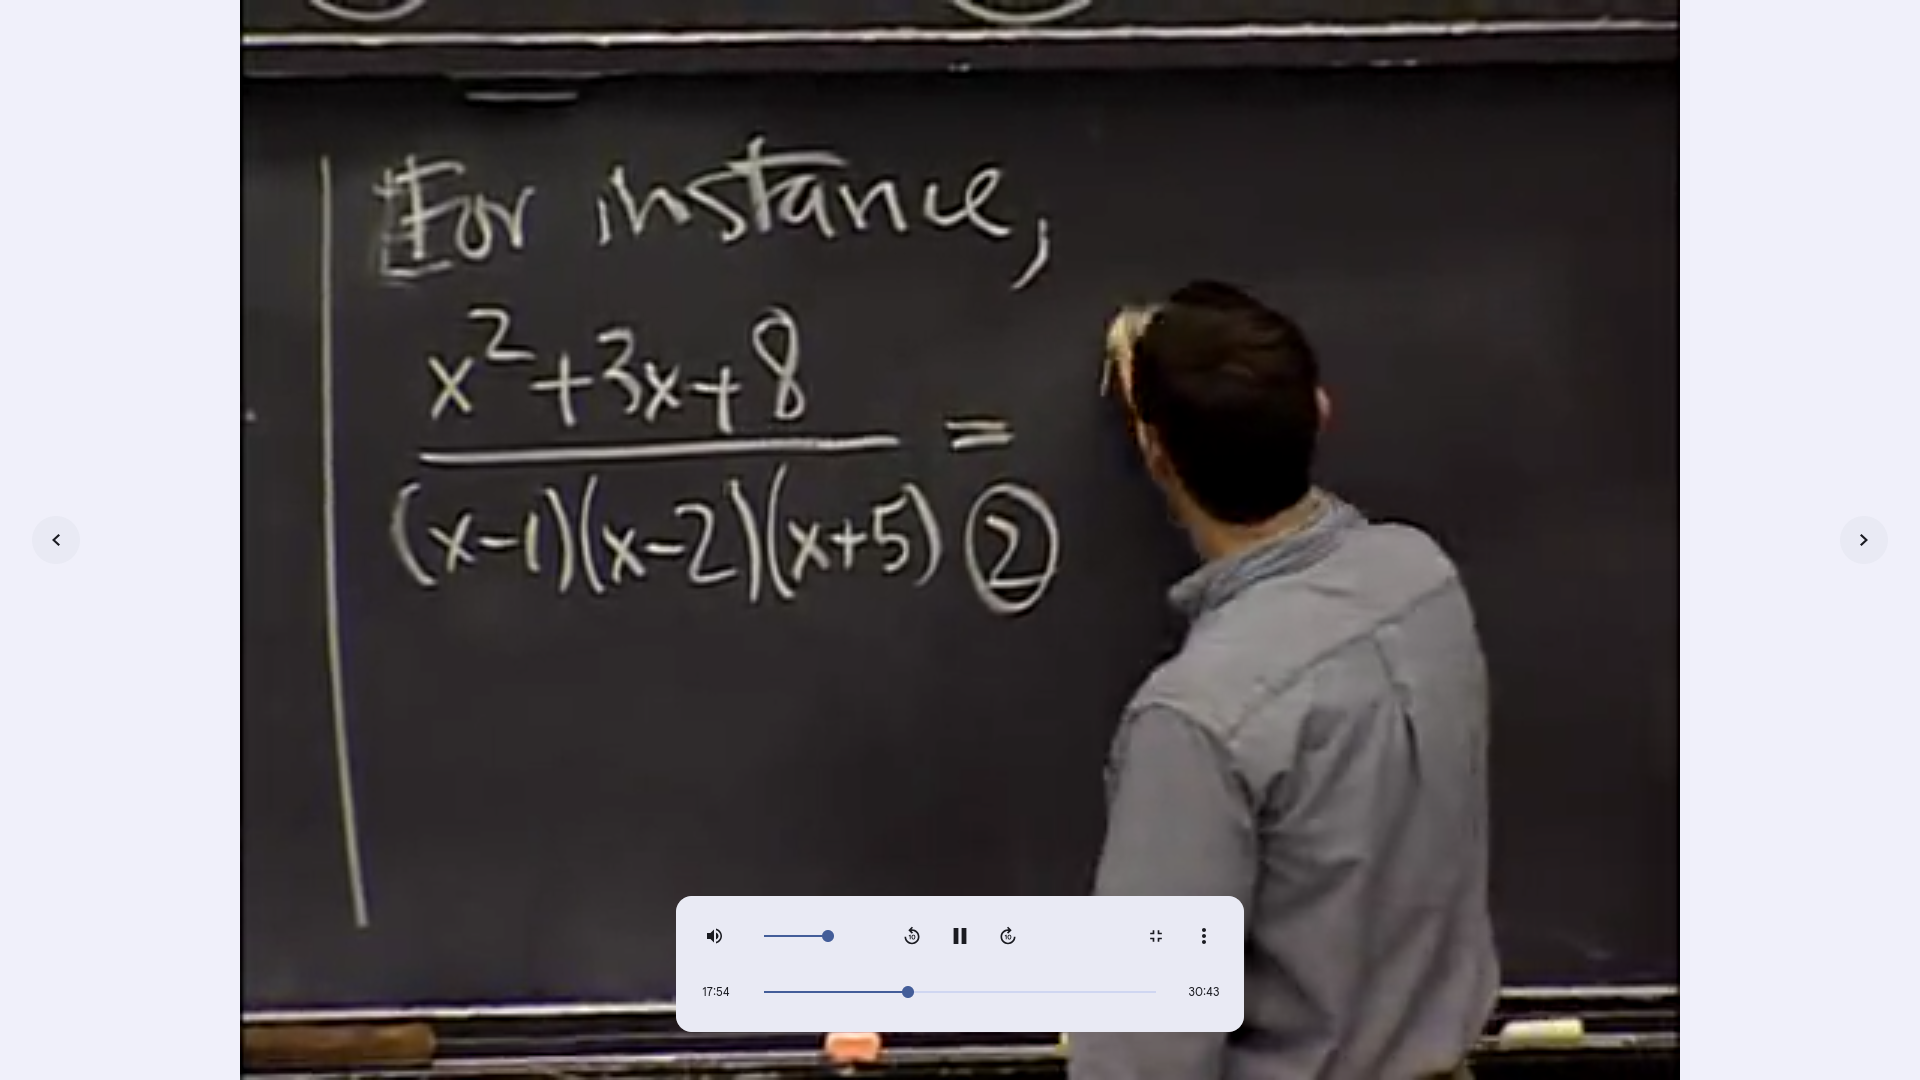 For instance,
x²+3x+8
(x-1)(x-2)(x+5) ②
=
10 10
17:54 30:43